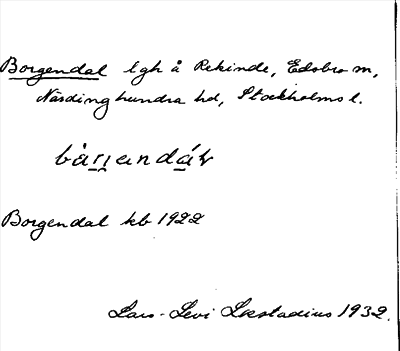 Borgendal lgh å Rekinde, Edsbro sn,
Närdinghundra hd, Stockholms l.
bàrjandáɫ
Borgendal kb 1922
Lars-Levi Læstadius 1932.